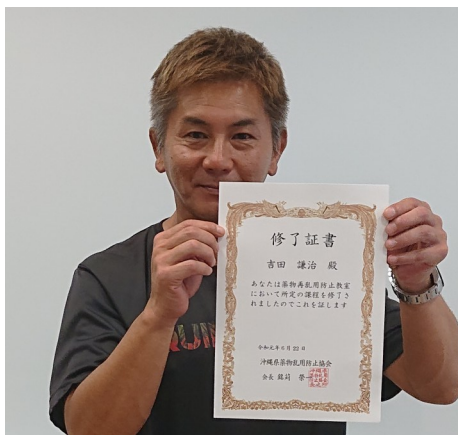 修了証書
吉田 謙治 殿
あなたは薬物再乱用防止教室
において所定の課程を修了さ
れましたのでこれを証します
令和元年 月22日
沖縄県薬物乱用防止協会
会長 銘苅 榮